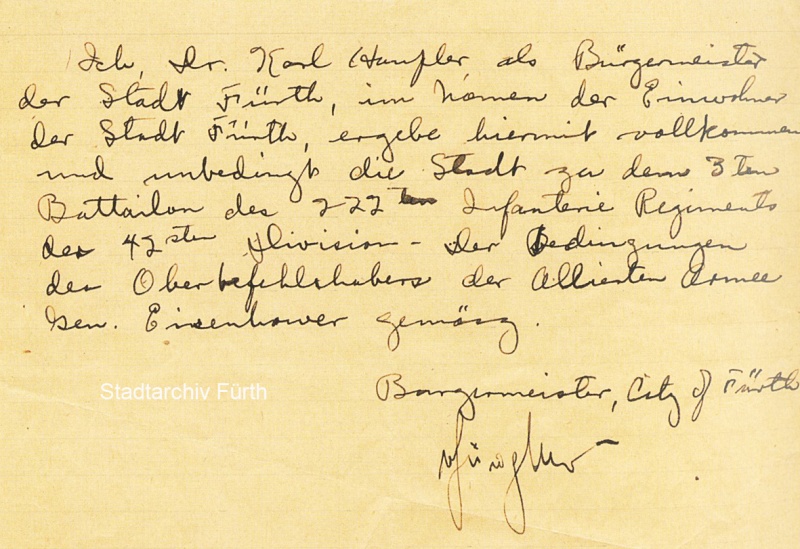 Ich, Dr. Karl Häupler als Bürgermeister
der Stadt Fürth, im Namen der Einwohner
der Stadt Fürth, ergebe hiermit vollkommen
und unbedingt die Stadt zu dem 3ten
Battailon des 222ten Infanterie Regiments
der 42sten Division - der Bedingungen
des Oberbefehlshabers der Alliesten Armee
Gen. Eisenhower gemäsz.
Burgermeister, City of Fürth
Stadtarchiv Fürth